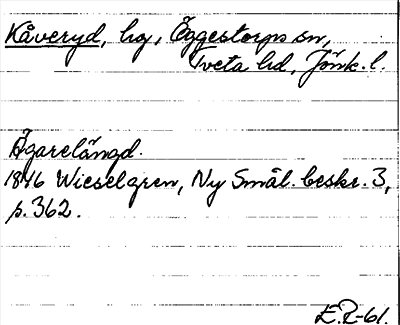 Kåveryd, hg, Öggestorps sn,
Tveta hd, Jönk. l.
Ägarelängd.
1846 Wieselgren, Ny Smål. beskr. 3,
p. 362.
E.R-61.